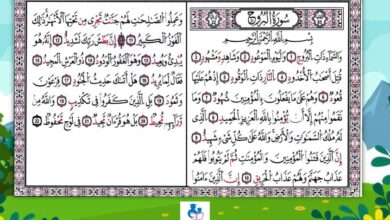 سُورَةُ الْبُرُوجِ
بِسْمِ اللَّهِ الرَّحْمَٰنِ الرَّحِيمِ
وَالسَّمَاءِ ذَاتِ الْبُرُوجِ ١ وَالْيَوْمِ الْمَوْعُودِ ٢ وَشَاهِدٍ وَمَشْهُودٍ ٣
قُتِلَ أَصْحَابُ الْأُخْدُودِ ٤ النَّارِ ذَاتِ الْوَقُودِ ٥ إِذْ هُمْ عَلَيْهَا
قُعُودٌ ٦ وَهُمْ عَلَىٰ مَا يَفْعَلُونَ بِالْمُؤْمِنِينَ شُهُودٌ ٧ وَمَا
نَقَمُوا مِنْهُمْ إِلَّا أَن يُؤْمِنُوا بِاللَّهِ الْعَزِيزِ الْحَمِيدِ ٨ الَّذِي
لَهُ مُلْكُ السَّمَاوَاتِ وَالْأَرْضِ وَاللَّهُ عَلَىٰ كُلِّ شَيْءٍ شَهِيدٌ ٩
إِنَّ الَّذِينَ فَتَنُوا الْمُؤْمِنِينَ وَالْمُؤْمِنَاتِ ثُمَّ لَمْ يَتُوبُوا فَلَهُمْ
عَذَابُ جَهَنَّمَ وَلَهُمْ عَذَابُ الْحَرِيقِ ١٠ إِنَّ الَّذِينَ آمَنُوا
وَعَمِلُوا الصَّالِحَاتِ لَهُمْ جَنَّاتٌ تَجْرِي مِن تَحْتِهَا الْأَنْهَارُ ذَٰلِكَ
الْفَوْزُ الْكَبِيرُ ١١ إِنَّ بَطْشَ رَبِّكَ لَشَدِيدٌ ١٢ إِنَّهُ هُوَ
يُبْدِئُ وَيُعِيدُ ١٣ وَهُوَ الْغَفُورُ الْوَدُودُ ١٤ ذُو الْعَرْشِ الْمَجِيدُ ١٥
فَعَّالٌ لِّمَا يُرِيدُ ١٦ هَلْ أَتَاكَ حَدِيثُ الْجُنُودِ ١٧ فِرْعَوْنَ
وَثَمُودَ ١٨ بَلِ الَّذِينَ كَفَرُوا فِي تَكْذِيبٍ ١٩ وَاللَّهُ مِن
وَرَائِهِم مُّحِيطٌ ٢٠ بَلْ هُوَ قُرْآنٌ مَّجِيدٌ ٢١ فِي لَوْحٍ مَّحْفُوظٍ ٢٢